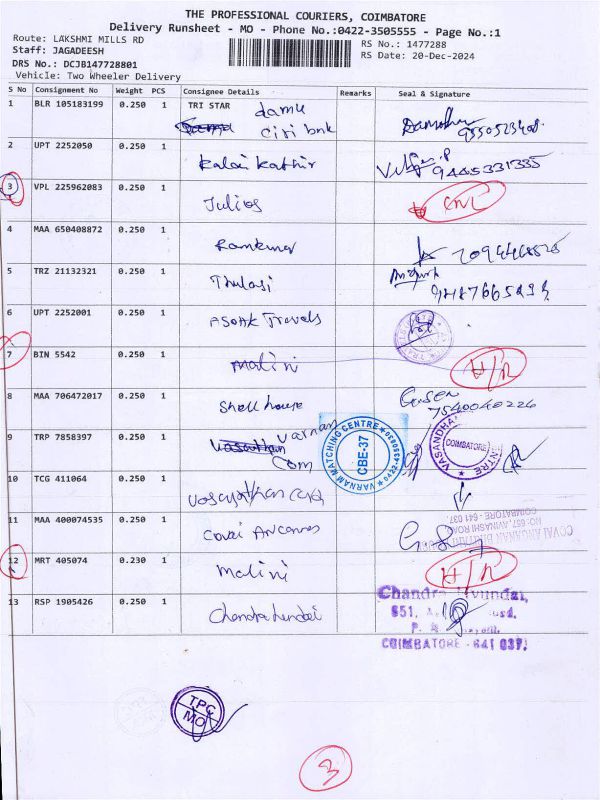 THE PROFESSIONAL COURIERS, COIMBATORE
Delivery Runsheet - MO - Phone No.:0422-3505555 - Page No.:1
Route: LAKSHMI MILLS RD
Staff: JAGADEESH
DRS No.: DCJB147728801
Vehicle: Two Wheeler Delivery
RS No.: 1477288
RS Date: 20-Dec-2024
S No Consignment No Weight PCS Consignee Details Remarks Seal & Signature
1 BLR 105183199 0.250 1 TRI STAR
2 UPT 2252050 0.250 1 Kalai Kathir 9445331335
3 VPL 225962083 0.250 1 Julios
4 MAA 650408872 0.250 1 Ramkumar
5 TRZ 21132321 0.250 1 Thulasi
6 UPT 2252001 0.250 1 Asok Travels
7 BIN 5542 0.250 1 Malini
8 MAA 706472017 0.250 1 Shell house 7540040226
9 TRP 7858397 0.250 1 Varnam
VARNAM MATCHING CENTRE
CBE-37
COIMBATORE
10 TCG 411064 0.250 1
11 MAA 400074535 0.250 1 Covai
NO: 657, AVINASHI ROAD
COIMBATORE - 641 037.
12 MRT 405074 0.230 1 Malini
13 RSP 1905426 0.250 1 Chandra hundai
Chandra Hyundai,
COIMBATORE - 641 037.
TPC
MO
3